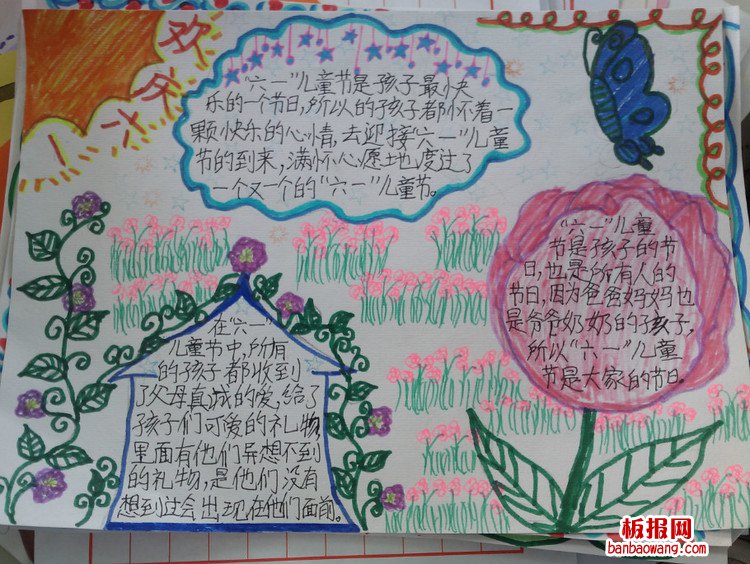 欢庆六一
"六一"儿童节是孩子最快
乐的一个节日,所以的孩子都怀着一
颗快乐的心情,去迎接"六一"儿童
节的到来,满怀心愿地度过了
一个又一个的"六一"儿童节。
"六一"儿童
节是孩子的节
日,也是所有人的
节日,因为爸爸妈妈也
是爷爷奶奶的孩子,
所以"六一"儿童
节是大家的节日。
在"六一"
儿童节中,所有
的孩子都收到
了父母真成的爱,给了
孩子们可爱的礼物,
里面有他们异想不到
的礼物,是他们没有
想到过会出现在他们面前。
板报网
banbaowang.com